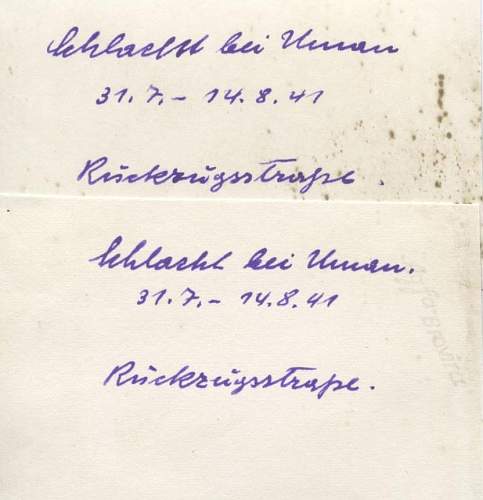 Schlacht bei Uman
31.7.– 14.8.41
Rückzugsstraße.
Schlacht bei Uman.
31.7.– 14.8.41
Rückzugsstraße.